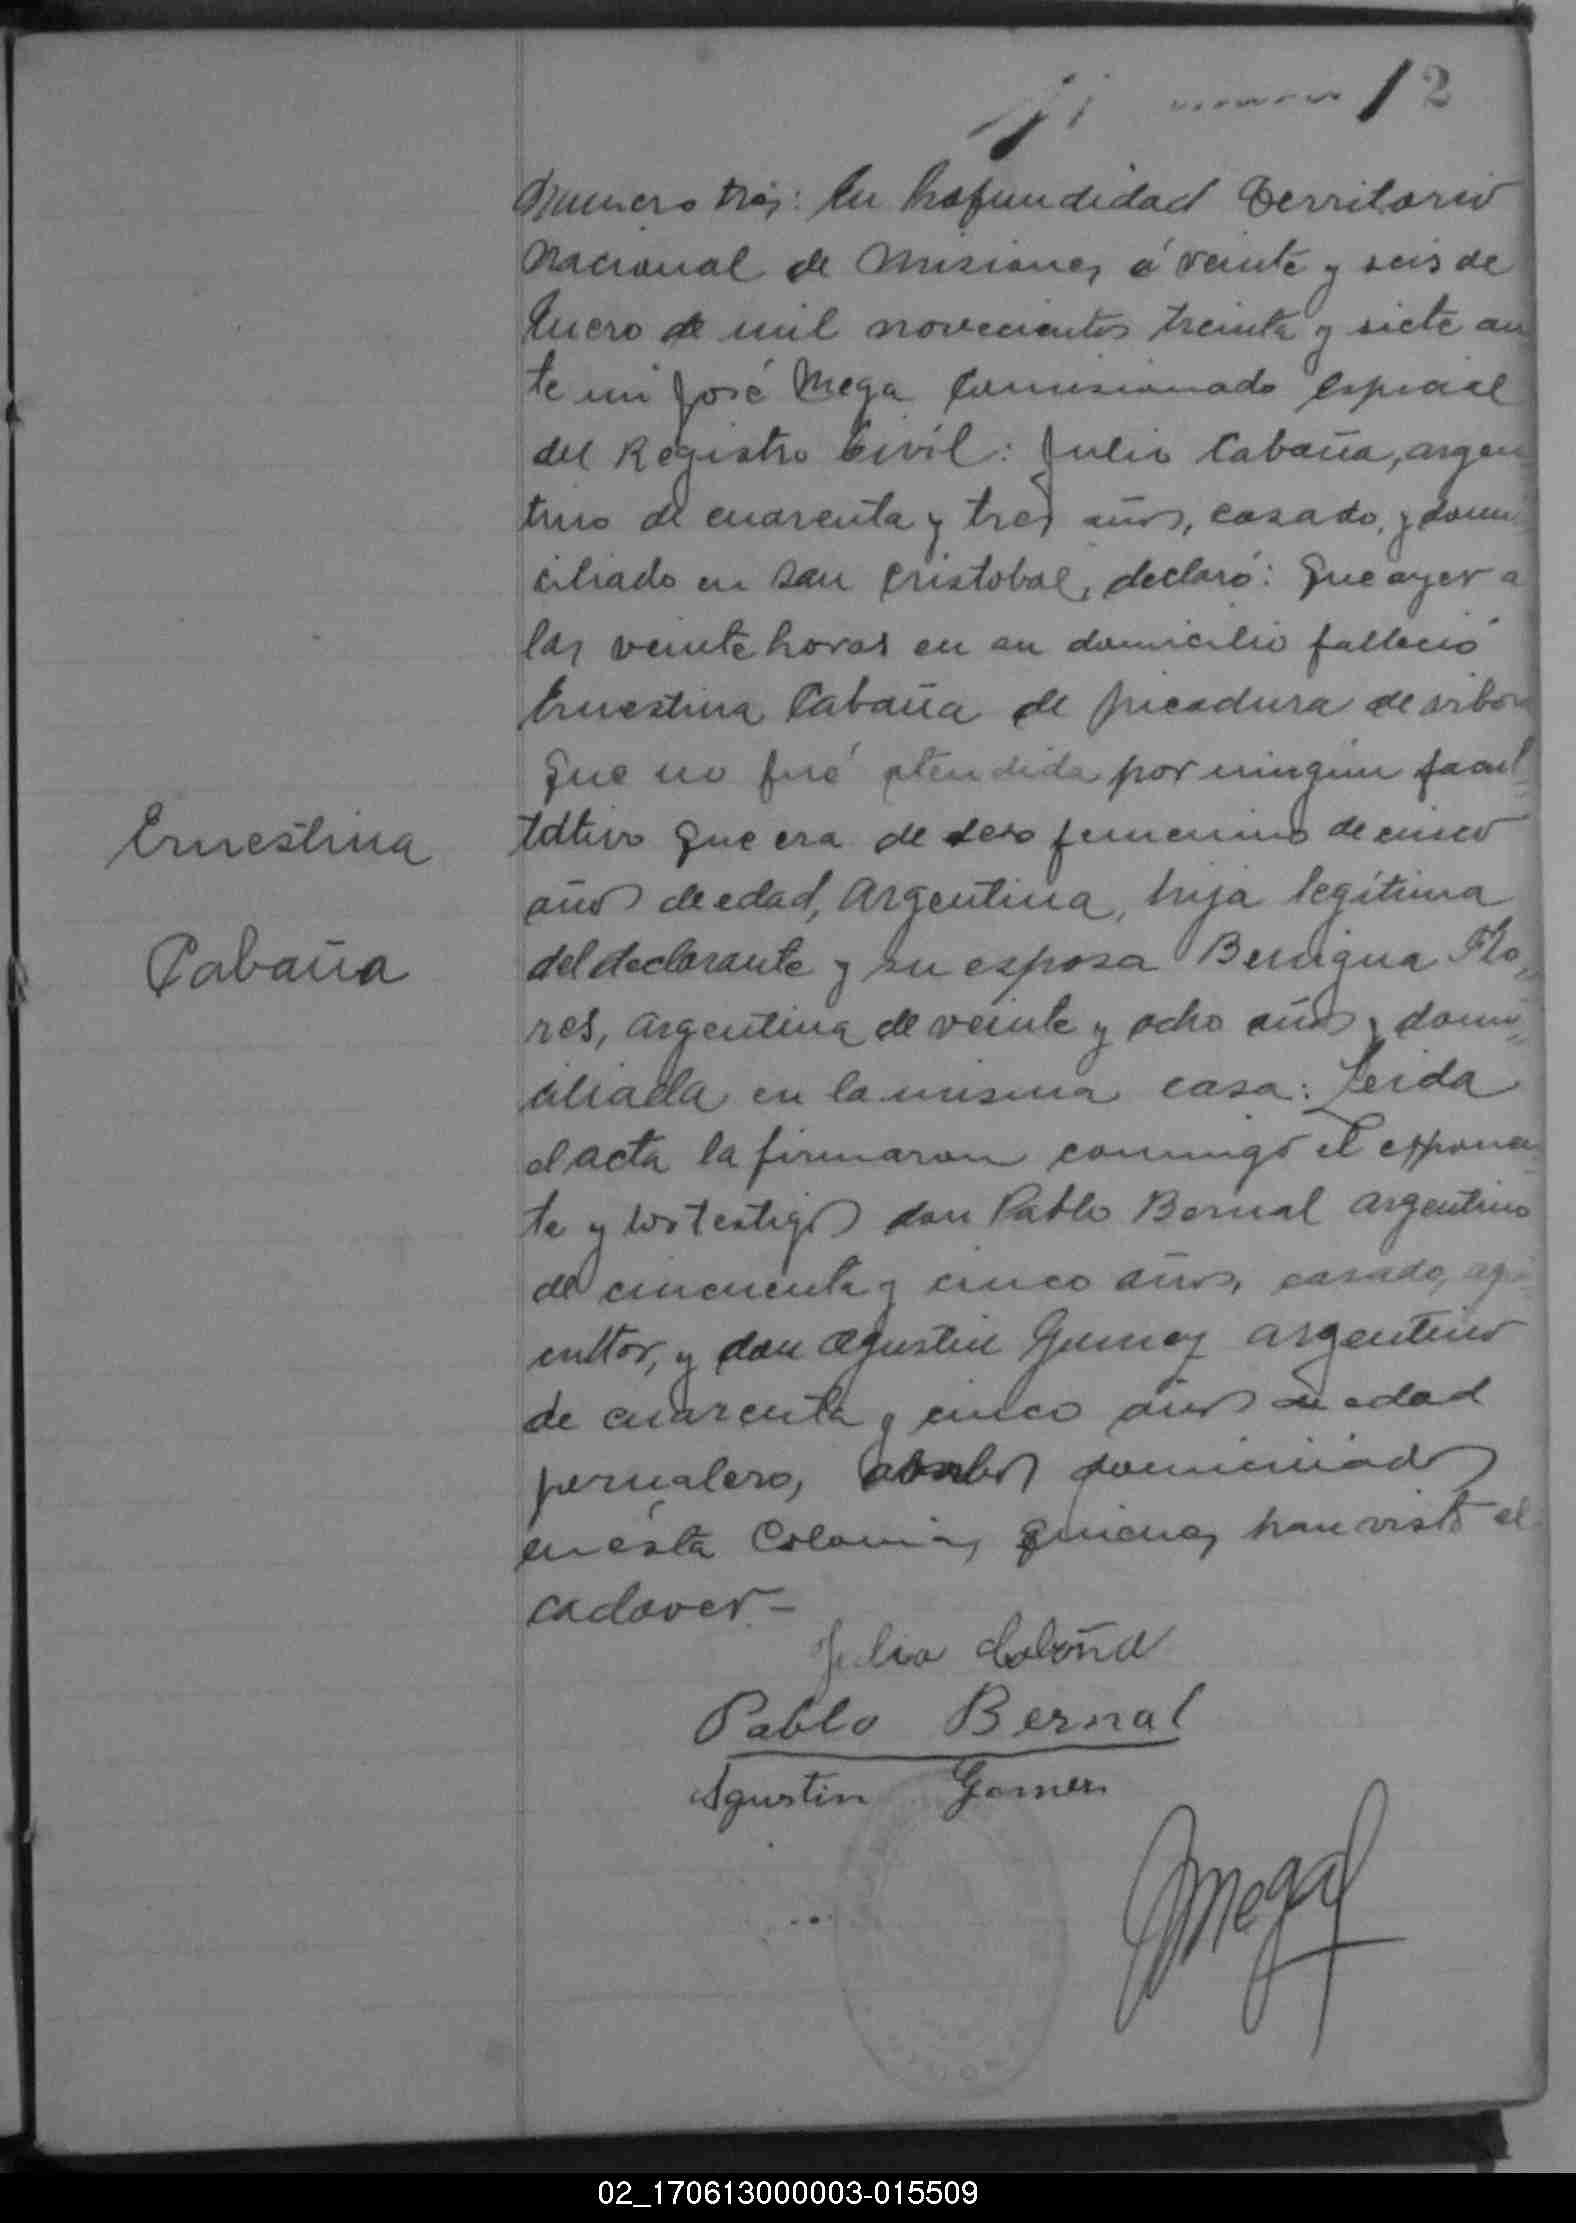 12
Numero tres: En Profundidad Territorio
Nacional de Misiones, á veinte y seis de
Enero de mil novecientos treinta y siete an
te mi José Mega Comisionado especial
del Registro Civil: Julio Cabaña, argen
tino de cuarenta y tres años, casado, y domi
ciliado en San Cristobal, declaró: Que ayer a
las veinte horas en su domicilio falleció
Ernestina Cabaña de picadura de vibora
Que no fué atendida por ningún facul
tativo Que era de sexo femenino de cinco
años de edad, Argentina, hija legítima
del declarante y su esposa Benigna Flo-
res, argentina de veinte y ocho años, domi-
ciliada en la misma casa: Leida
el acta la firmaron conmigo el esponen
te y los testigos don Pablo Bernal argentino
de cincuenta y cinco años, casado, agri
cultor, y don Agustin Gomez argentino
de cuarenta y cinco años de edad
jornalero, ambos domiciliados
en ésta Colonia, quienes han visto el
cadaver-
Ernestina
Cabaña
Julio Cabaña
Pablo Bernal
Agustin Gomes
JMega
02_170613000003-015509